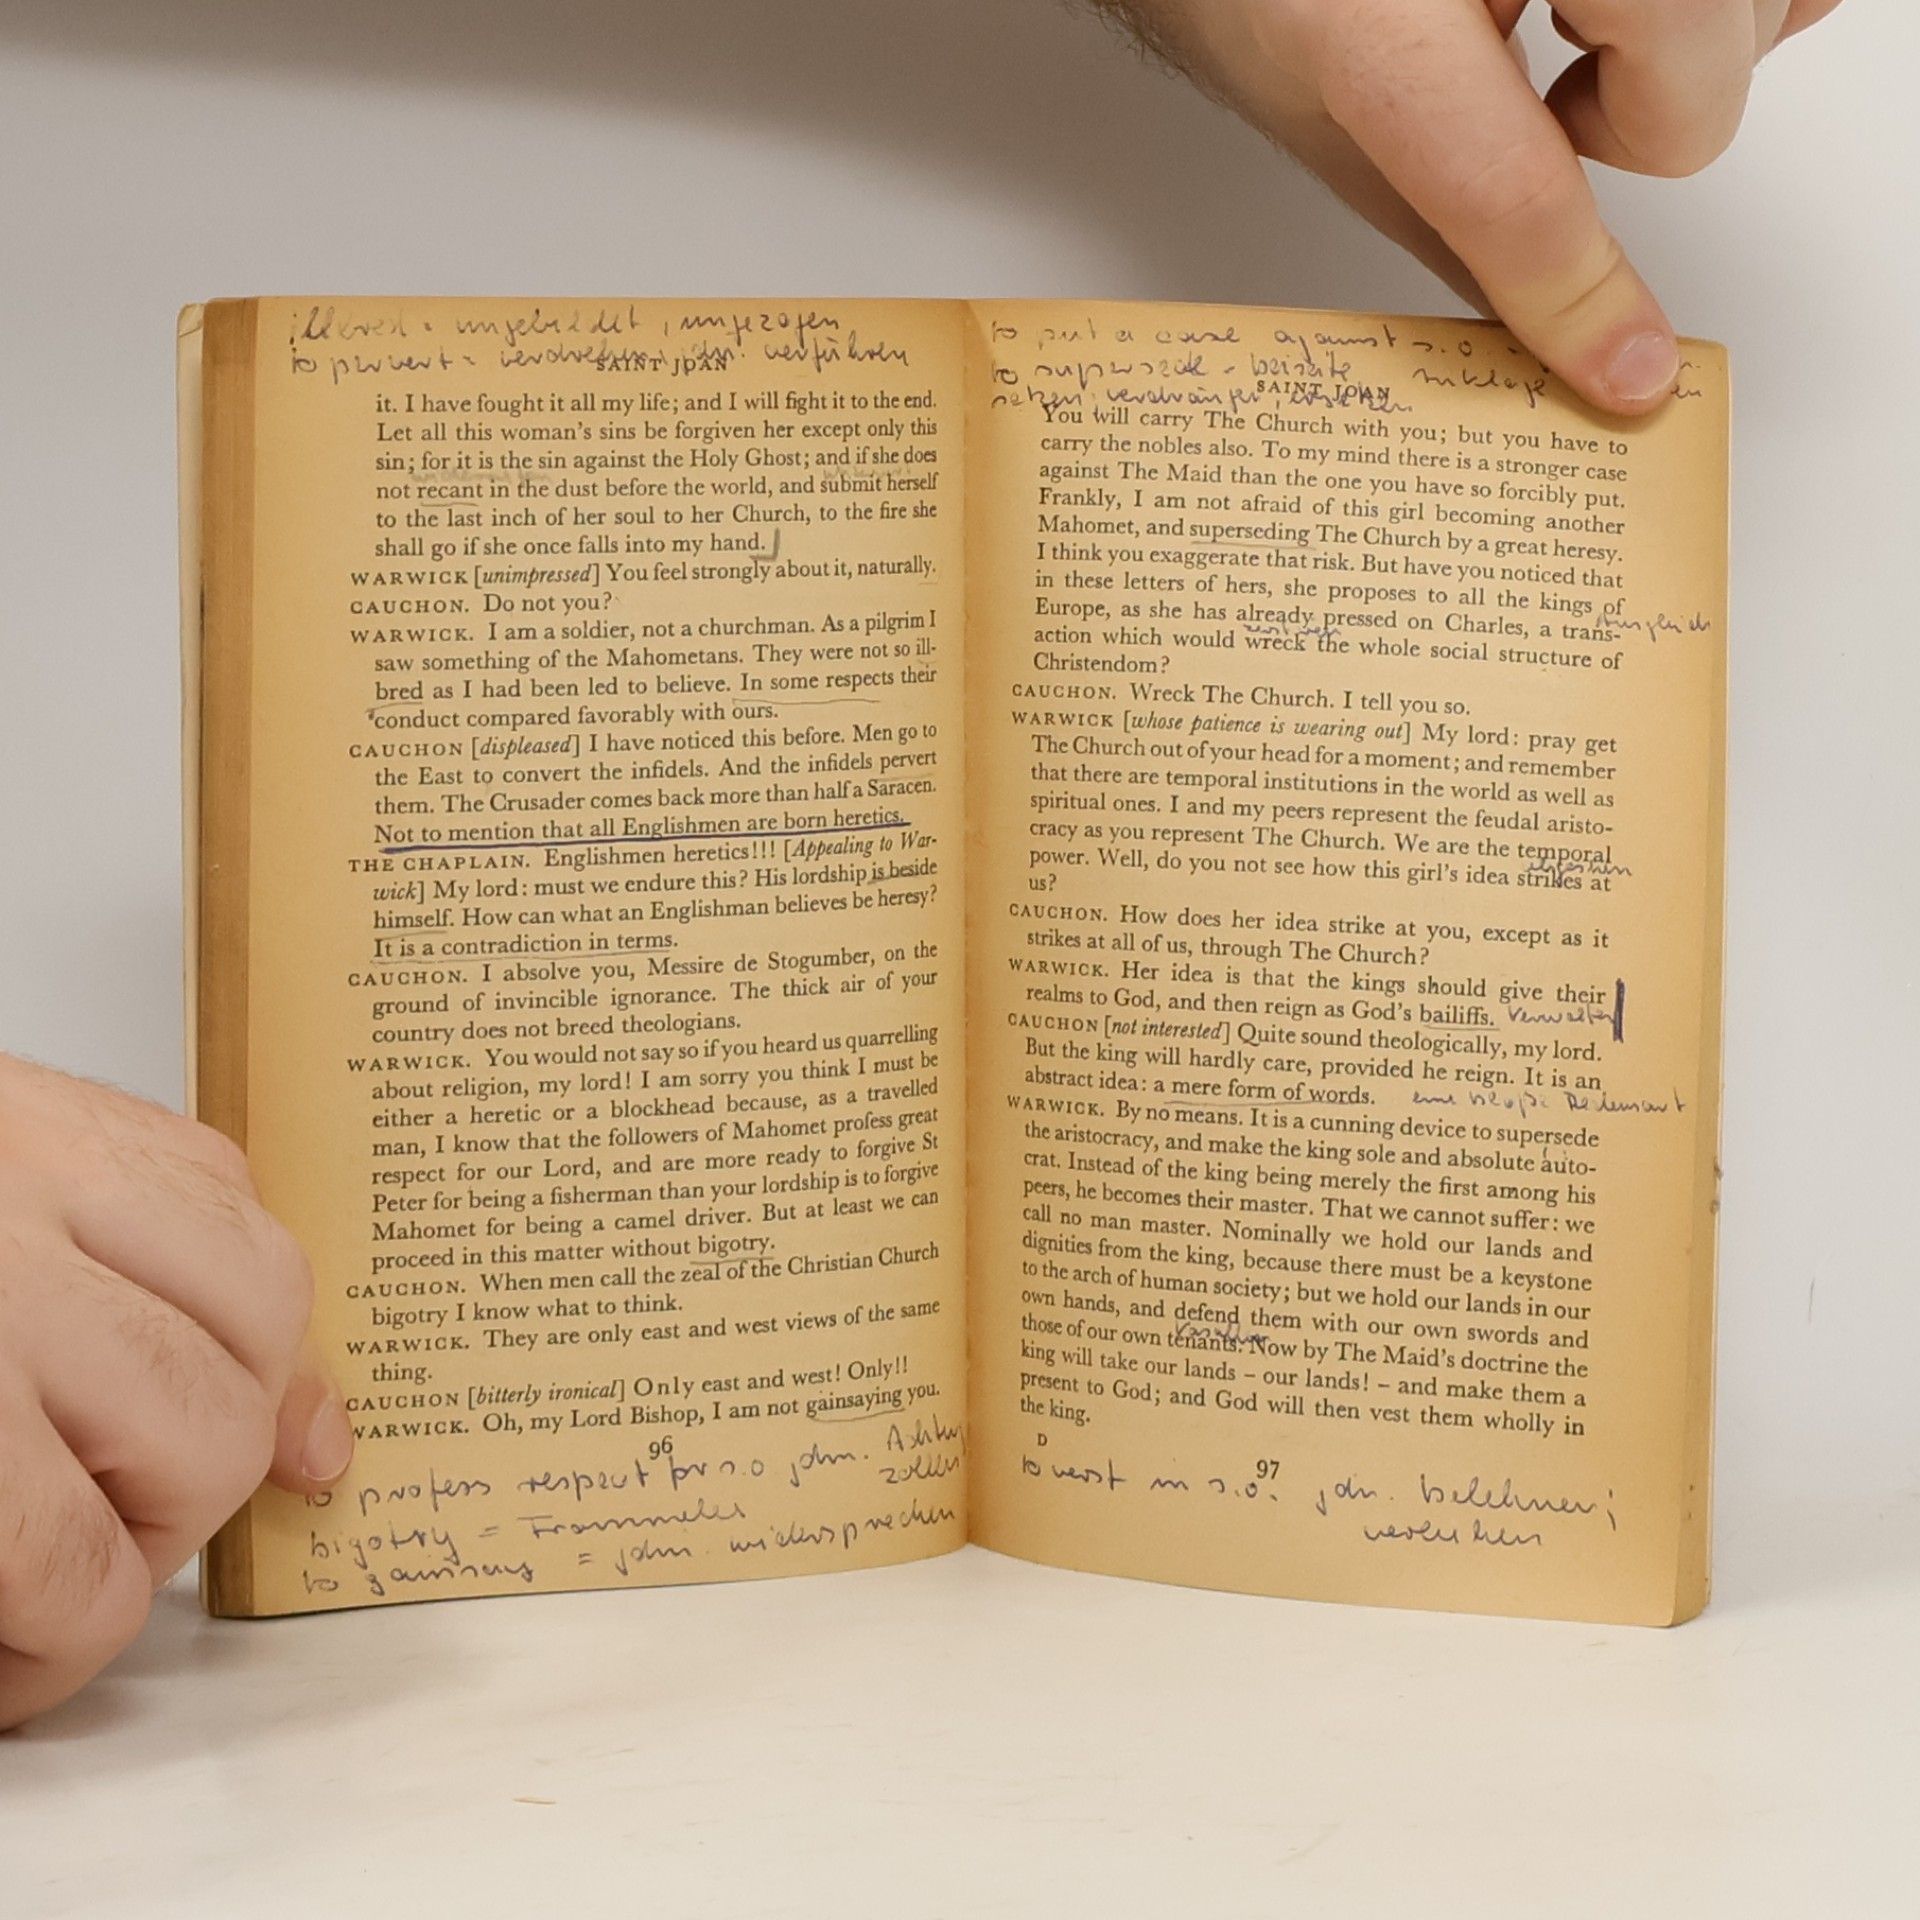 illbred = ungebildet, ungezogen
to pervert = verdrehen, jdn. verführen
SAINT JOAN
it. I have fought it all my life; and I will fight it to the end.
Let all this woman's sins be forgiven her except only this
sin; for it is the sin against the Holy Ghost; and if she does
not recant in the dust before the world, and submit herself
to the last inch of her soul to her Church, to the fire she
shall go if she once falls into my hand.
WARWICK [unimpressed] You feel strongly about it, naturally.
CAUCHON. Do not you?
WARWICK. I am a soldier, not a churchman. As a pilgrim I
saw something of the Mahometans. They were not so ill-
bred as I had been led to believe. In some respects their
conduct compared favorably with ours.
CAUCHON [displeased] I have noticed this before. Men go to
the East to convert the infidels. And the infidels pervert
them. The Crusader comes back more than half a Saracen.
Not to mention that all Englishmen are born heretics.
THE CHAPLAIN. Englishmen heretics!!! [Appealing to War-
wick] My lord: must we endure this? His lordship is beside
himself. How can what an Englishman believes be heresy?
It is a contradiction in terms.
CAUCHON. I absolve you, Messire de Stogumber, on the
ground of invincible ignorance. The thick air of your
country does not breed theologians.
WARWICK. You would not say so if you heard us quarrelling
about religion, my lord! I am sorry you think I must be
either a heretic or a blockhead because, as a travelled
man, I know that the followers of Mahomet profess great
respect for our Lord, and are more ready to forgive St
Peter for being a fisherman than your lordship is to forgive
Mahomet for being a camel driver. But at least we can
proceed in this matter without bigotry.
CAUCHON. When men call the zeal of the Christian Church
bigotry I know what to think.
WARWICK. They are only east and west views of the same
thing.
CAUCHON [bitterly ironical] Only east and west! Only!!
WARWICK. Oh, my Lord Bishop, I am not gainsaying you.
96
to profess respect for s.o jdm. Achtung
zollen
bigotry = Frömmelei
to gainsay = jdm. widersprechen
to put a case against s.o.
to supersede = beiseite
setzen, verdrängen, ersetzen
SAINT JOAN
You will carry The Church with you; but you have to
carry the nobles also. To my mind there is a stronger case
against The Maid than the one you have so forcibly put.
Frankly, I am not afraid of this girl becoming another
Mahomet, and superseding The Church by a great heresy.
I think you exaggerate that risk. But have you noticed that
in these letters of hers, she proposes to all the kings of
Europe, as she has already pressed on Charles, a trans-
Ausgleich
action which would wreck the whole social structure of
Christendom?
CAUCHON. Wreck The Church. I tell you so.
WARWICK [whose patience is wearing out] My lord: pray get
The Church out of your head for a moment; and remember
that there are temporal institutions in the world as well as
spiritual ones. I and my peers represent the feudal aristo-
cracy as you represent The Church. We are the temporal
power. Well, do you not see how this girl's idea strikes at
us?
CAUCHON. How does her idea strike at you, except as it
strikes at all of us, through The Church?
WARWICK. Her idea is that the kings should give their
realms to God, and then reign as God's bailiffs. Verwalter
CAUCHON [not interested] Quite sound theologically, my lord.
But the king will hardly care, provided he reign. It is an
abstract idea: a mere form of words. eine bloße Redensart
WARWICK. By no means. It is a cunning device to supersede
the aristocracy, and make the king sole and absolute auto-
crat. Instead of the king being merely the first among his
peers, he becomes their master. That we cannot suffer: we
call no man master. Nominally we hold our lands and
dignities from the king, because there must be a keystone
to the arch of human society; but we hold our lands in our
own hands, and defend them with our own swords and
Vasallen
those of our own tenants. Now by The Maid's doctrine the
king will take our lands – our lands! – and make them a
present to God; and God will then vest them wholly in
the king.
D
97
to vest in s.o. jdn. belehnen;
verleihen